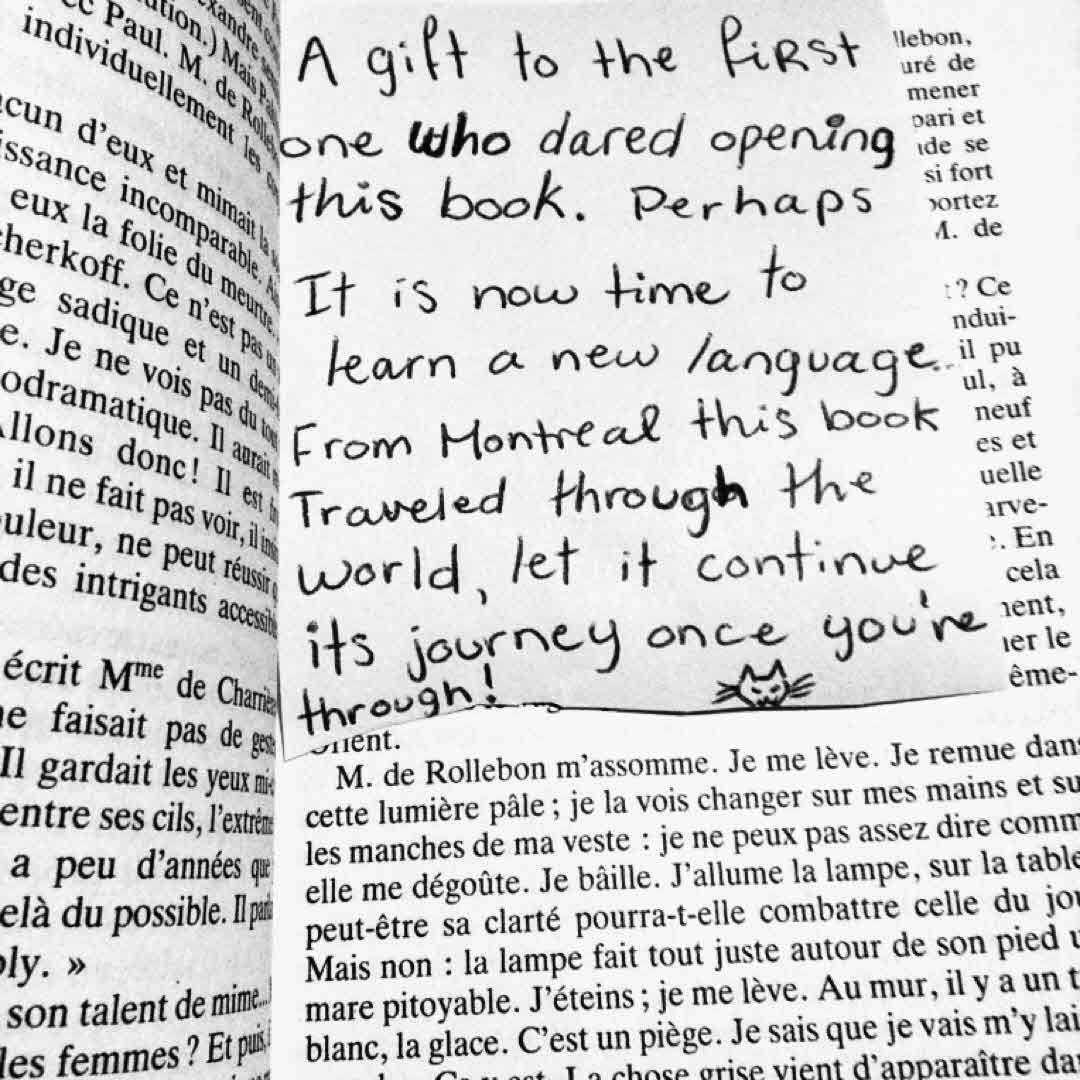 ution.) Mais
Paul. M. de
individuellement les
d'eux et mimait
incomparable.
eux la folie du meurtre.
Ce n'est pas
sadique et un
Je ne vois pas du tout
Il aurait
Allons donc! Il est
il ne fait pas voir, il
ne peut réussir
des intrigants
écrit Mme de
faisait pas de
Il gardait les yeux mi-
entre ses cils, l'extrême
a peu d'années que
du possible. Il
ply. »
son talent de mime...
les femmes ? Et puis,
A gift to the first
one who dared opening
this book. Perhaps
It is now time to
learn a new language..
From Montreal this book
Traveled through the
world, let it continue
its journey once you're
through!
llebon,
uré de
mener
pari et
ide se
si fort
portez
M. de
? Ce
ndui-
il pu
ul, à
neuf
es et
uelle
arve-
. En
cela
nent,
ier le
ême-
Orient.
M. de Rollebon m'assomme. Je me lève. Je remue dans
cette lumière pâle ; je la vois changer sur mes mains et su
les manches de ma veste : je ne peux pas assez dire comm
elle me dégoûte. Je bâille. J'allume la lampe, sur la table
peut-être sa clarté pourra-t-elle combattre celle du jou
Mais non : la lampe fait tout juste autour de son pied u
mare pitoyable. J'éteins ; je me lève. Au mur, il y a un t
blanc, la glace. C'est un piège. Je sais que je vais m'y lai
La chose grise vient d'apparaître da